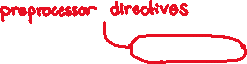 preprocessor directives